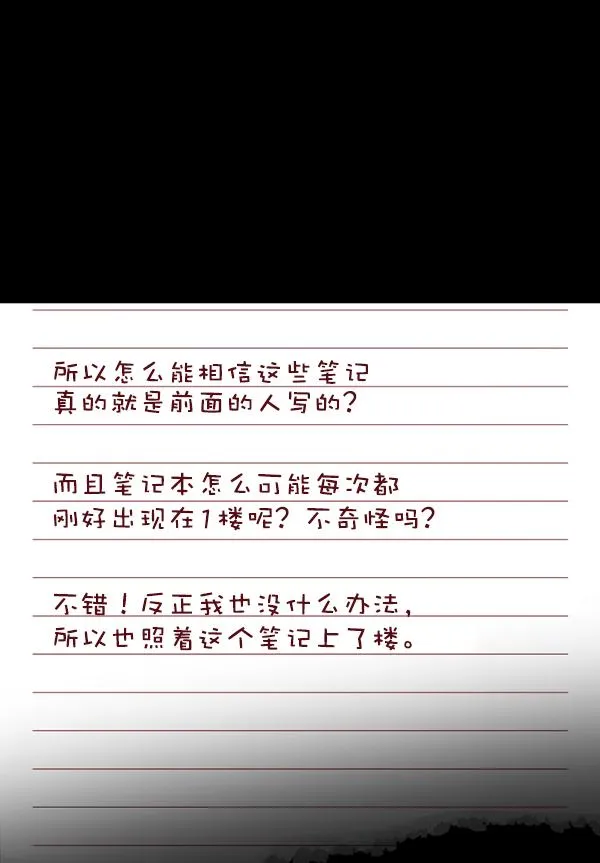 所以怎么能相信这些笔记
真的就是前面的人写的？
而且笔记本怎么可能每次都
刚好出现在1楼呢？不奇怪吗？
不错！反正我也没什么办法，
所以也照着这个笔记上了楼。